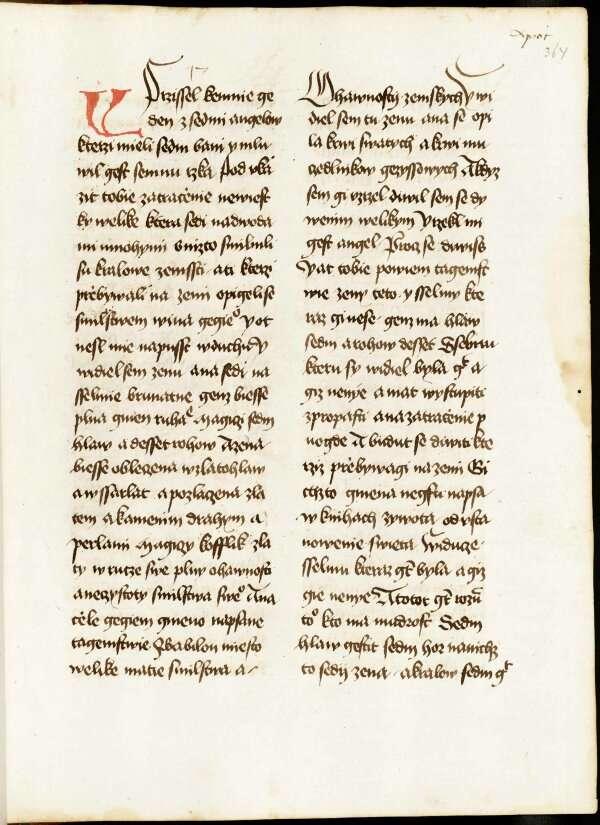 17
364
Y Przissel kemnie ge
den z sedmi angelow
kterzi mieli sedm bani y mlu
wil gest semnu rzka Pod vka
zit tobie zatracenie newiest
ky welike ktera sedi nadwoda
mi mnohymi snizto smilnili
su kralowe zemssti a ti kterzi
przebywali na zemi opigeli se
smilstwem wina gegieo Y ot
nesl mie napusst wduchu Y
widiel sem zenu ana sedi na
sselmie brunatne genz biesse
plna gmen ruhaeo magiczi sedm
hlaw a desset rohow Azena
biesse oblezena wzlatohlaw
a wssarlat a pozlazena zla
tem a kamenim drahym a
perlami magiczy kofflik zla
ty w rucze swe plny ohawnosti
a neczystoty smilstwa sweo Ana
czele gegiem gmeno napsane
tagemstwie Zbabilon miesto
welike matie smilstwa a
Ohawnosti zemskych Y wi
diel sem tu zenu ana se opi
la krwi swatych a krwi mu
czedlnikow gezyssowych Akdyz
sem gi vzrzel diwil sem se dy
wenim welikym Y rzekl mi
gest angel Procz se diwiss
Yat tobie powiem tagemst
wie zeny teto y sselmy kte
raz gi nese genz ma hlaw
sedm a rohow desset Sselma
kteru sy widiel byla gt a
giz nenye a mat wystupiti
zpropasti a na zatracenie p
uogde A budut se diwiti kte
rziz przebywagi na zemi Gi
chzto gmena negsu napsa
w knihach zywota od vsta
nowenie swieta Widucze
sselmu kteraz gt byla a giz
gie nenye Atotot gt rozu
to kto ma mudrost Sedm
hlaw gestit sedm hor nanichz
to sedij zena a kralow sedm gt